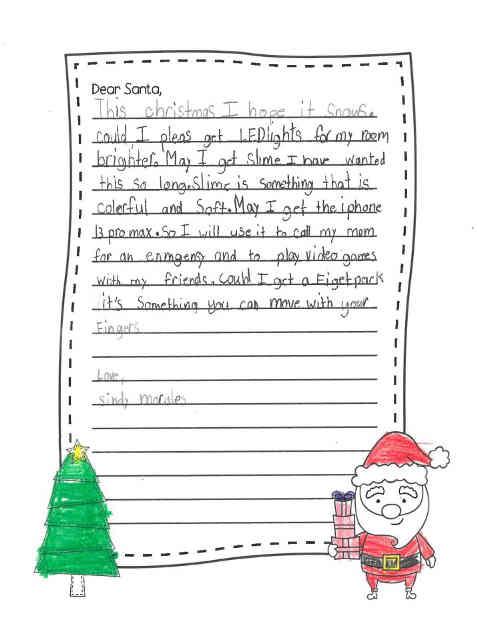 Dear Santa,
This christmas I hope it snows.
could I pleas get LED lights for my room
brighter. May I get slime I have wanted
this so long. Slime is something that is
colerful and Soft. May I get the iphone
13 pro max. So I will use it to call my mom
for an enmgensy and to play video games
with my friends. Could I get a Figet pack
it's Something you can move with your
Fingers
Love,
sindy morales